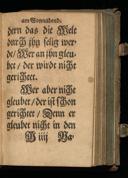 am Sonnabend.
dern das die Welt
durch jhn selig wer-
de/ Wer an jhn gleu-
bet/ der wirdt nicht
gerichtet.
Wer aber nicht
gleubet/ der ist schon
gerichtet/ Denn er
gleubet nicht in den
H iiij Na-